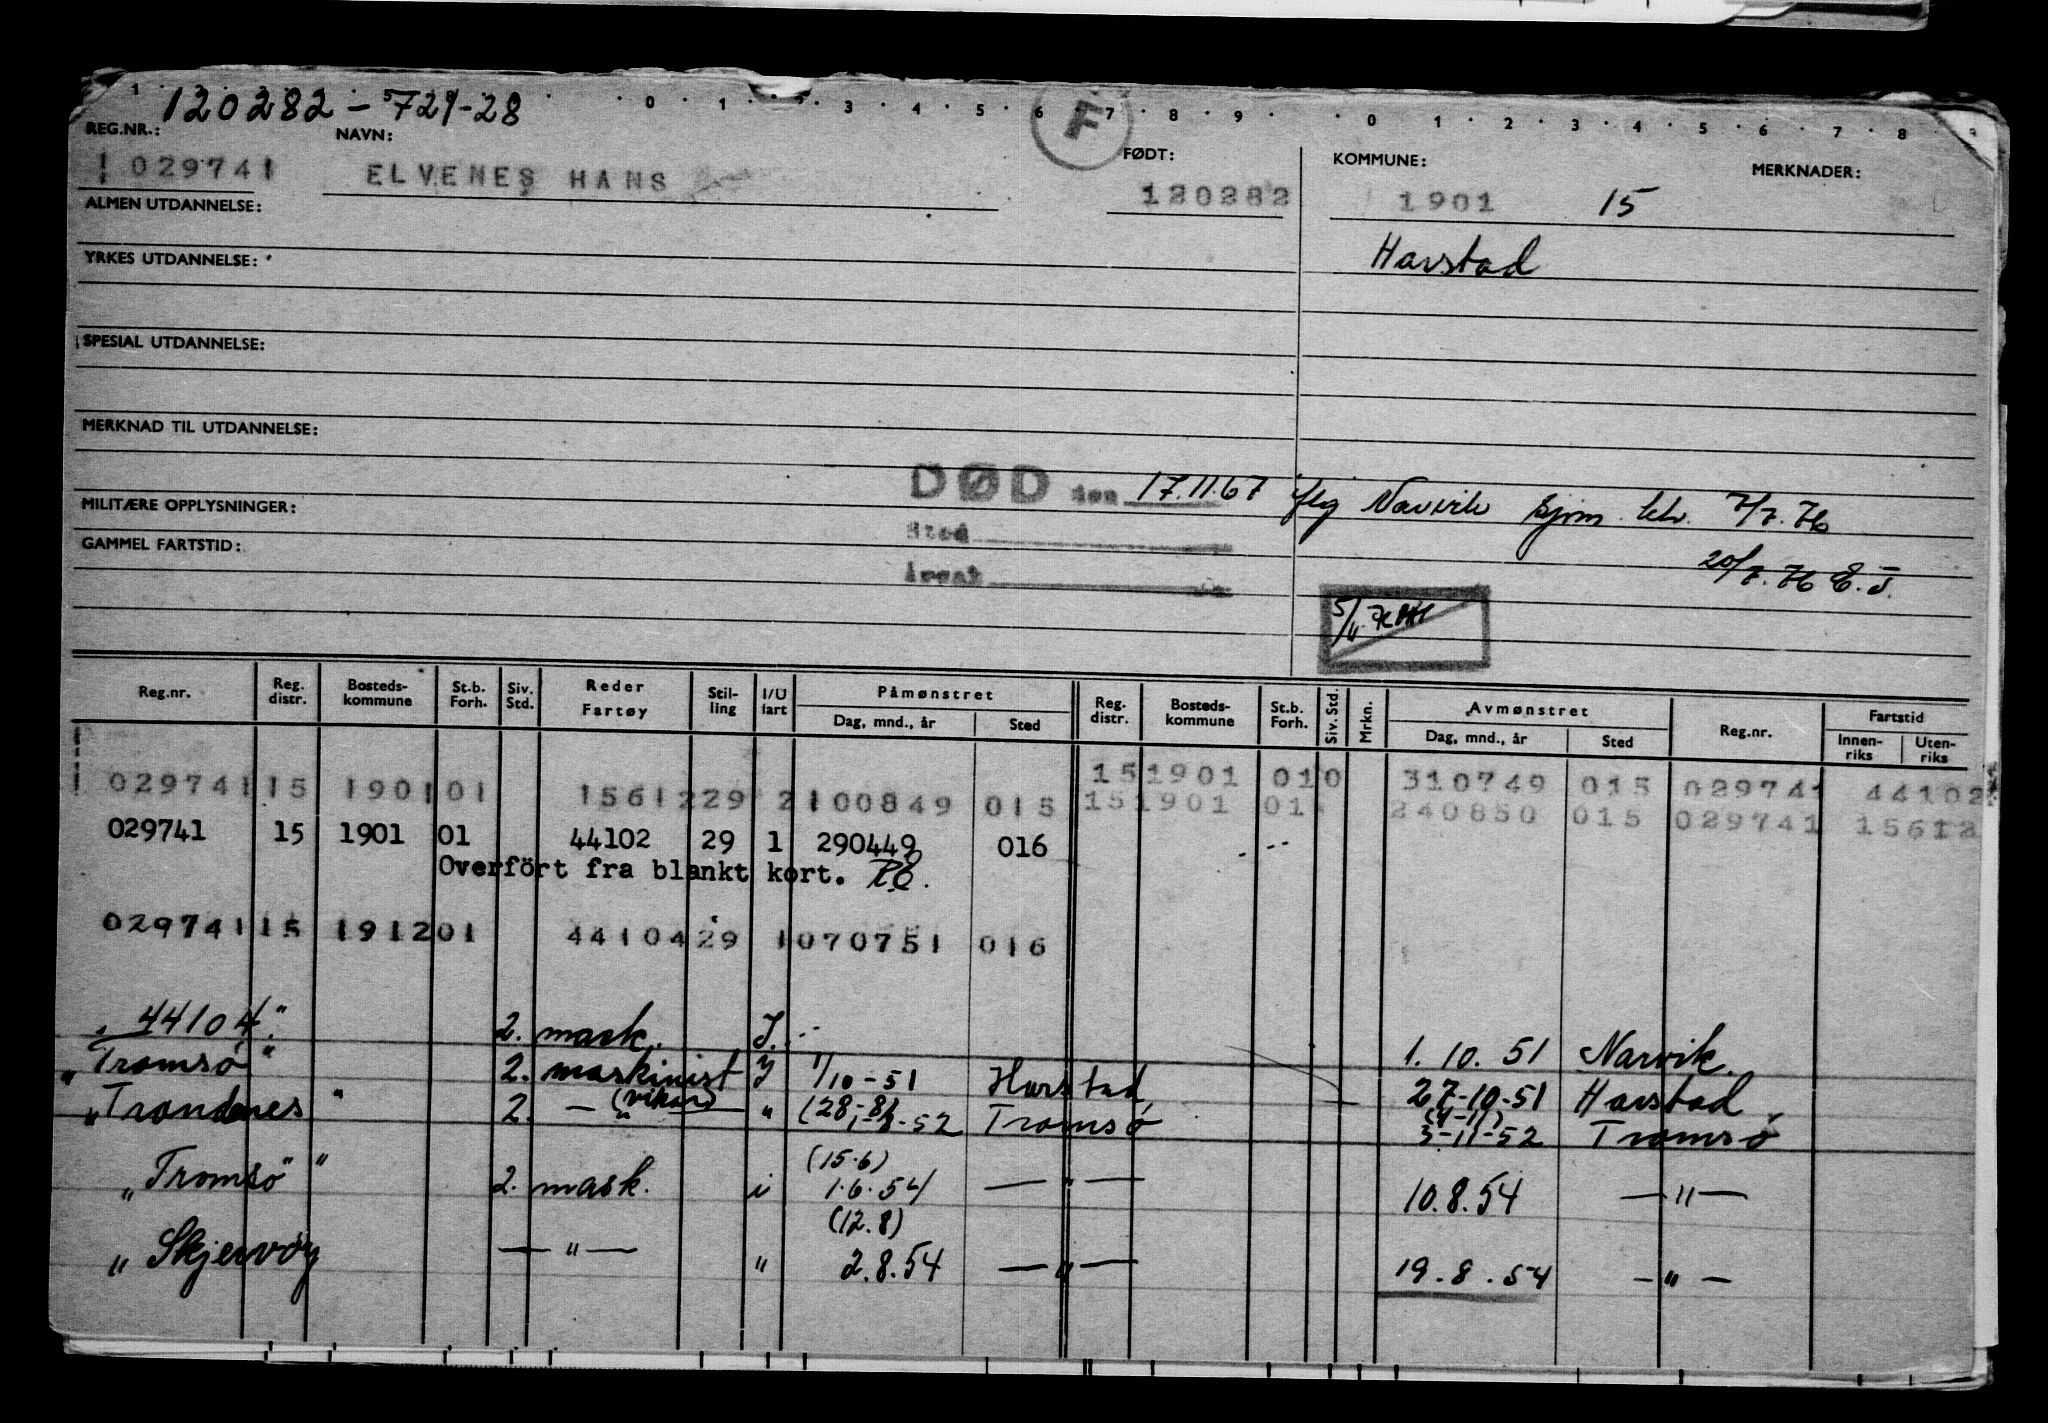 120282-5729-28
REG.NR.: NAVN: FØDT: KOMMUNE: MERKNADER:
F
029741 ELVENES HANS 120282 1901 15
ALMEN UTDANNELSE:
Harstad
YRKES UTDANNELSE:
SPESIAL UTDANNELSE:
MERKNAD TIL UTDANNELSE:
DØD den 17.11.67 iflg Narvik sjøm. ktr. 7/7.76
MILITÆRE OPPLYSNINGER:
Sted
GAMMEL FARTSTID:
20/7.76 E.I.
Årsak
5/11
Reg.nr. Reg. distr. Bosteds-kommune St.b. Forh. Siv. Std. Reder Fartøy Stil-ling I/U fart Påmønstret Dag, mnd., år Sted Reg. distr. Bosteds-kommune St.b. Forh. Siv. Std. Mrkn. Avmønstret Dag, mnd., år Sted Reg.nr. Fartstid Innen-riks Uten-riks
029741 15 1901 01 15612 29 2 100849 015 15 1901 01 0 310749 015 029741 44102
15 1901 01 240850 015 029741 15612
029741 15 1901 01 44102 29 1 290449 016
Overført fra blankt kort.
029741 15 1912 01 44104 29 1 070751 016
" 44104 " 2. mask. I. 1. 10. 51 Narvik.
" Tromsö " 2. maskinist I 1/10-51 Harstad, 27-10-51 Harstad
(vikar) (28-8) (4-11)
" Trondenes " 2. — " — " 1-8-52 Tromsö 3-11-52 Tromsö
(15.6)
" Tromsö " " 2. mask. i 1.6.54 — " — 10.8.54 — " —
(12.8)
" Skjervöy — " — " 2.8.54 — " — 19.8.54 — " —